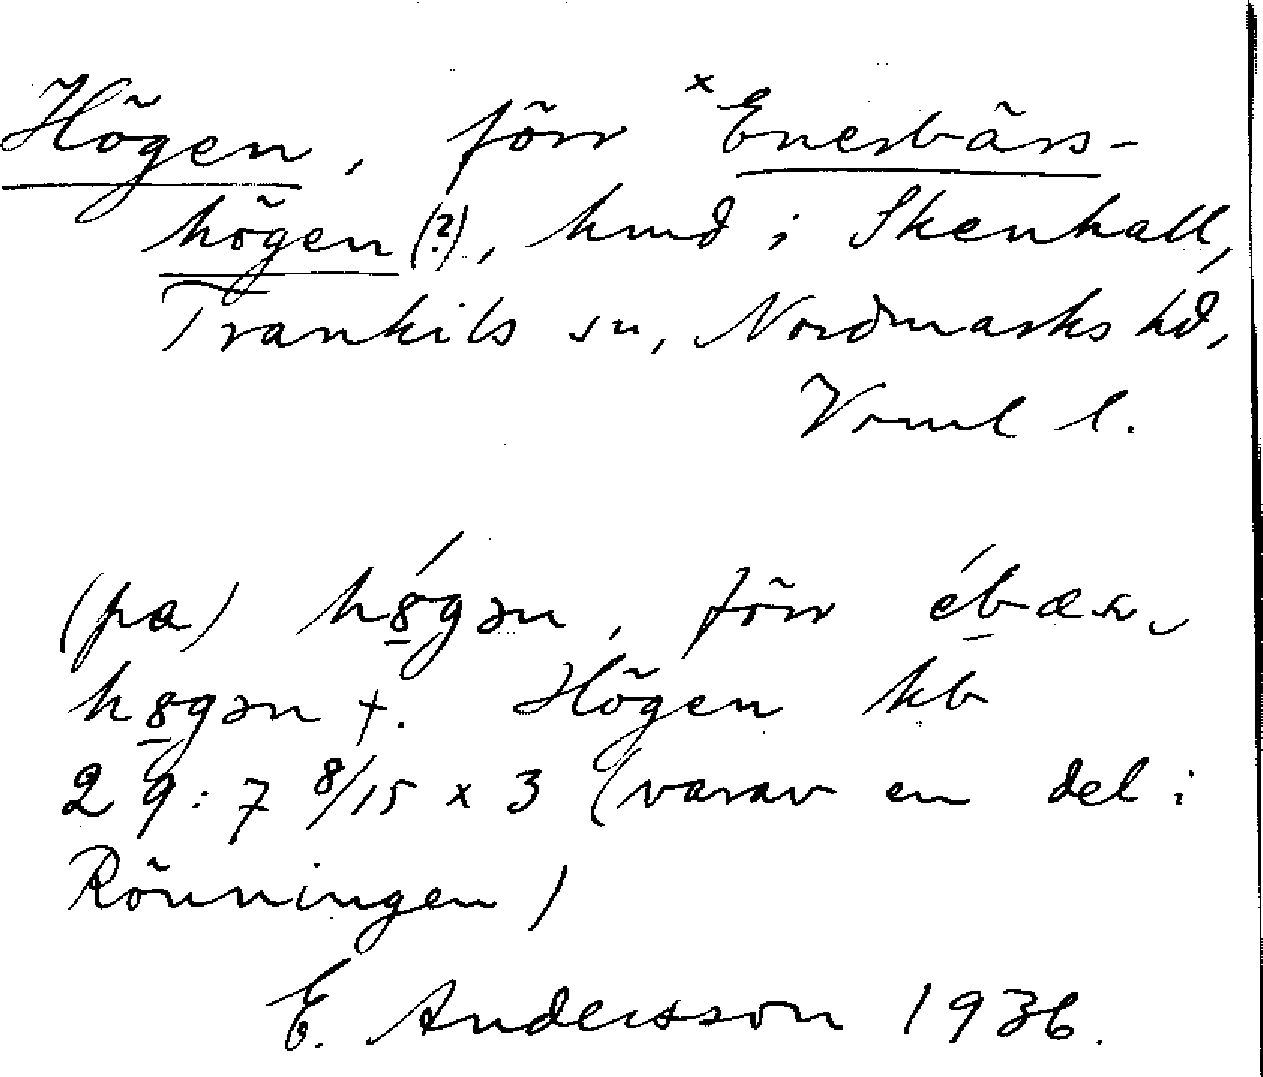 Högen, förr ×Enerbärs-
högen (?), hmd i Skenhall,
Trankils sn, Nordmarks hd,
Vrml l.
(pa) hǿgən, förr ébær
høgən †. Högen kb
29:7 8/15 x 3 (varav en del i
Rönningen)
E. Andersson 1936.